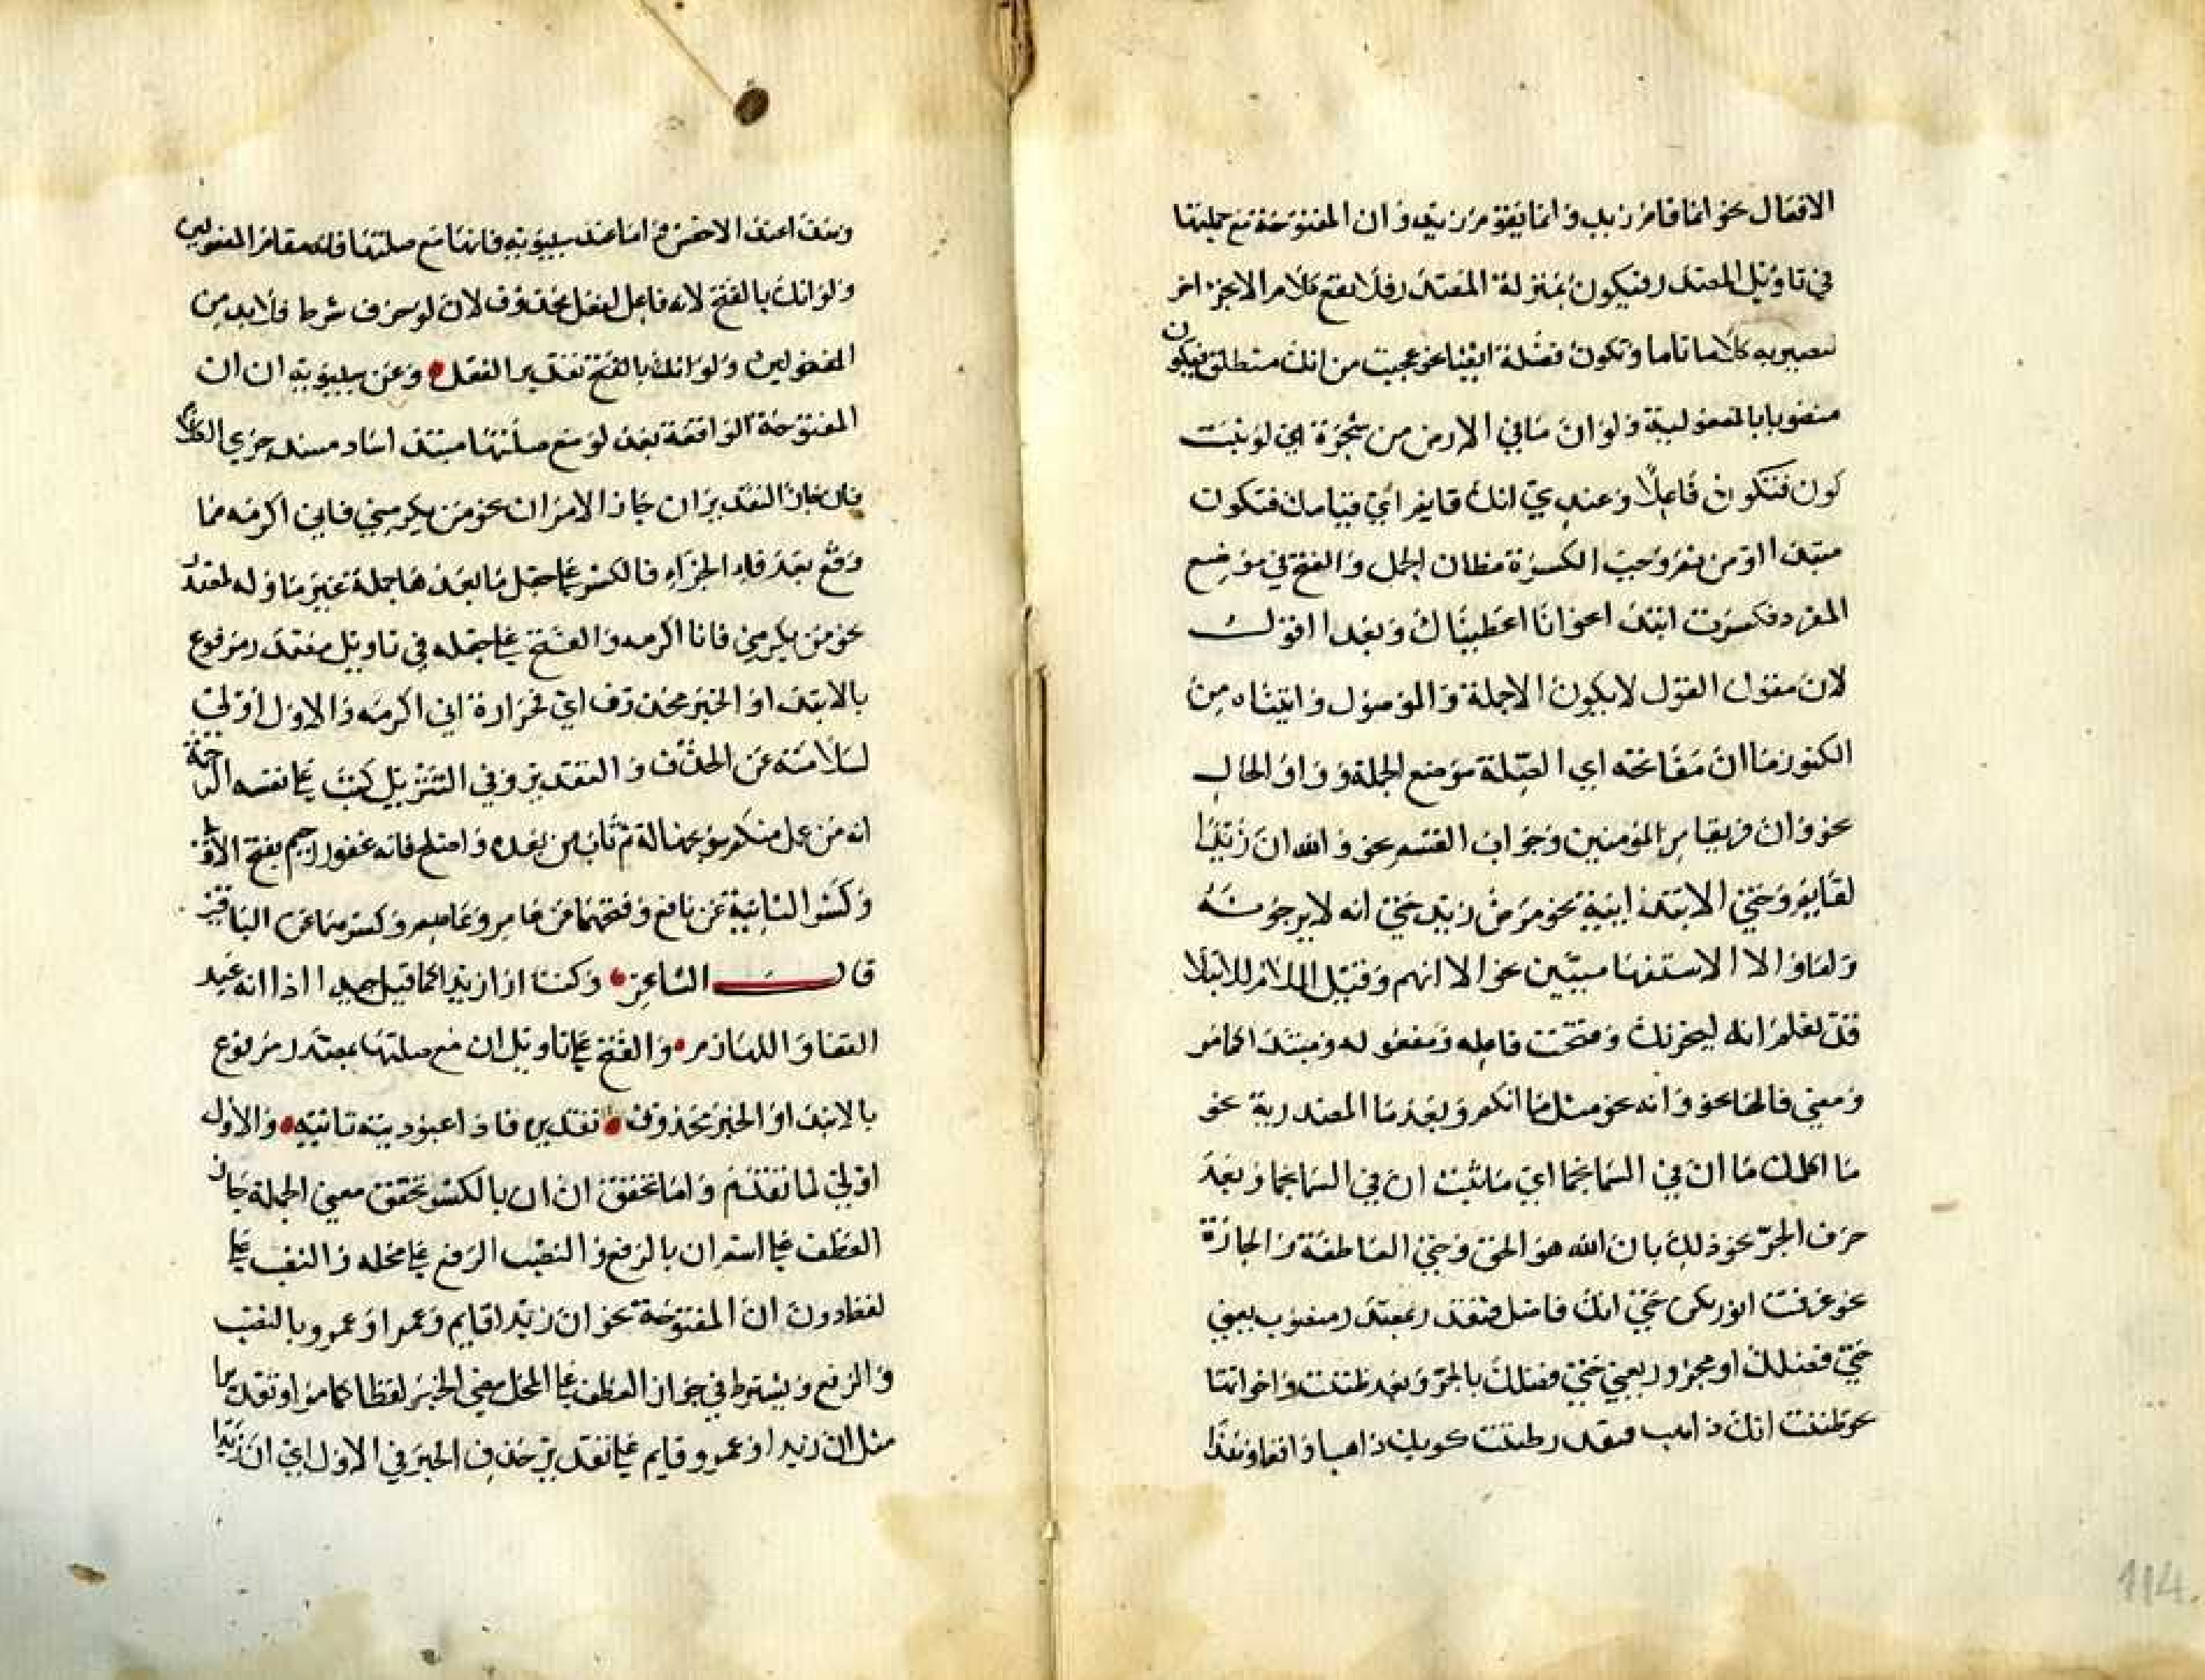 الافعال نحو انما قام زيد وانما يقوم زيد وان المفتوحة مع جملتها
في تاويل المصدر فيكون بمنزلة المصدر فلا يقع كلام الا بجزء اخر
تصير به كلاما تاما وتكون فضلة ايضا نحو عجبت من انك منطلق فيكون
منصوبا بالمفعولية ولو ان ما في الارض من شجرة اي لو ثبت
كون فتكون فاعلا وعندي انك قايم اي قيامك فتكون
مبتدا ومن ثم وجبت الكسرة مظان الجمل والفتح في موضع
المفرد فكسرت ابتدا نحو انا اعطيناك وبعد القول
لان مقول القول لا يكون الا جملة والموصول واتيناه من
الكنوز ما ان مفاتحه اي الصلة موضع الجملة وواو الحال
نحو وان فريقا من المؤمنين وجواب القسم نحو والله ان زيدا
لقايم وحتى الابتدائية نحو مرض زيد حتى انه لا يرجونه
ولما والا الاستفها مبين نحو الا انهم وقبل اللام للابتلا
قد نعلم انه ليحزنك وفتحت فاعله ومفعوله ومبتدا كما مر
ومعنى فالها نحو وانه نحو مثل ما انكم وبعد ما المصدرية نحو
ما اكلك ما ان في السما نجما اي ما ثبت ان في السما نجما وبعد
حرف الجر نحو ذلك بان الله هو الحق وحتى العاطفة والجارة
نحو عرفت امورك حتى انك فاضل فتقدر بمصدر منصوب بمعنى
حتى فضلك او مجرور بمعنى حتى فضلك بالجر وبعد ظننت واخواتها
نحو ظننت انك ذاهب فيقدر ظننت كونك ذاهبا واقعا وهذا
وهذا عند الاخفش واما عند سيبويه فانها مع صلتها قايمه مقام المفعولين
ولو انك بالفتح لانه فاعل لفعل محذوف لان لو حرف شرط فلا بد من
المفعولين ولو انك بالفتح تقدير الفعل وعن سيبويه ان ان
المفتوحة الواقعة بعد لو مع صلتها مبتدا ساد مسد جزي الكلام
فان جاز التقديران جاز الامران نحو من يكرمني فاني اكرمه مما
وقع بعد فاء الجزاء فالكسر على جعل ما بعدها جملة غير ماوله لمصدر
نحو من يكرمني فانا اكرمه والفتح على جعله في تاويل مصدر مرفوع
بالابتدا والخبر محذوف اي فجزاوه اني اكرمه والاول اولى
لسلامته عن الحذف والتقدير وفي التنزيل كتب على نفسه الرحمة
انه من عمل منكم سوء بجهالة ثم تاب من بعده واصلح فانه غفور رحيم بفتح الاولى
وكسر الثانية عن نافع وفتحهما عن عامر وعاصم وكسرهما عن الباقين
قال الشاعر وكنت ارى زيدا كما قيل سيدا اذا انه عبد
القفا واللهازم والفتح على تاويل ان مع صلتها بمصدر مرفوع
بالابتدا والخبر محذوف تقديره فاذا عبوديته ثابتة والاول
اولى لما تقدم واما تخفف ان ان بالكسر تحقق معنى الجملة جاز
العطف على اسم ان بالرفع والنصب الرفع على محله والنصب على
لفظه دون ان المفتوحة نحو ان زيدا قايم وعمرا وعمرو بالنصب
والرفع ويشترط في جواز العطف على المحل مضي الخبر لفظا كما مر او تقديرا
مثل ان زيدا وعمرو قايم على تقدير حذف الخبر في الاول اي ان زيدا
114.